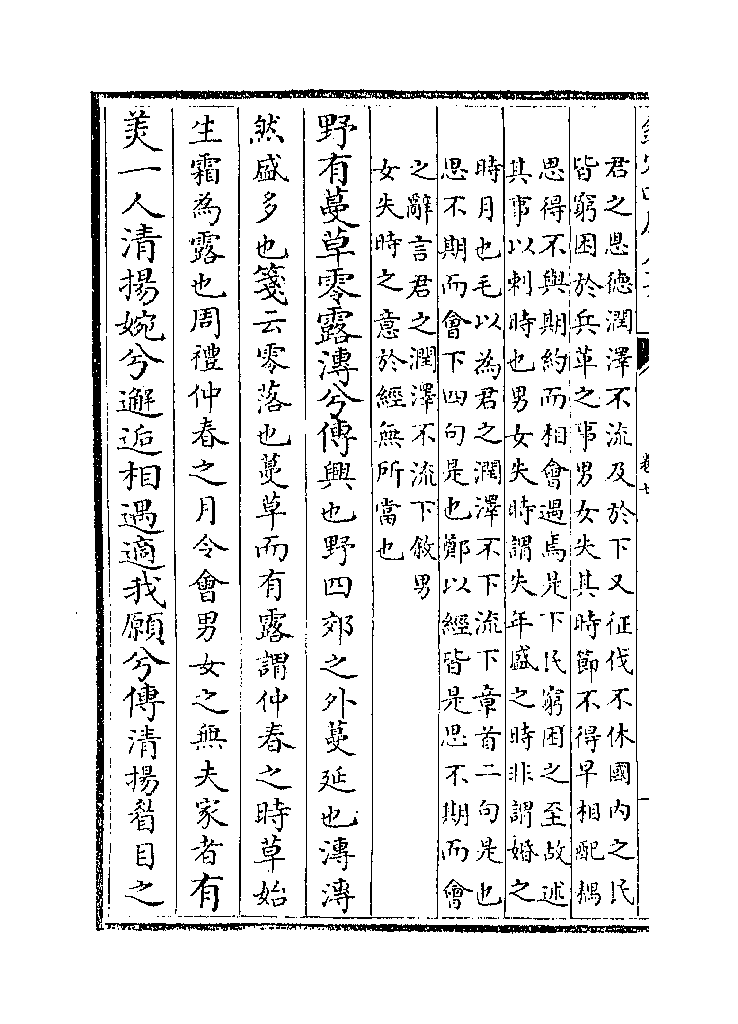 君之恩德潤澤不流及於下又征伐不休國內之民
皆窮困於兵革之事男女失其時節不得早相配耦
思得不與期約而相會遇焉是下民窮困之至故述
其事以刺時也男女失時謂失年盛之時非謂婚之
時月也毛以為君之潤澤不下流下章首二句是也
思不期而會下四句是也鄭以經皆是思不期而會
之辭言君之潤澤不流下敘男
女失時之意於經無所當也
野有蔓草零露漙兮傳興也野四郊之外蔓延也漙漙
然盛多也箋云零落也蔓草而有露謂仲春之時草始
生霜為露也周禮仲春之月令會男女之無夫家者有
美一人清揚婉兮邂逅相遇適我願兮傳清揚眉目之
卷七